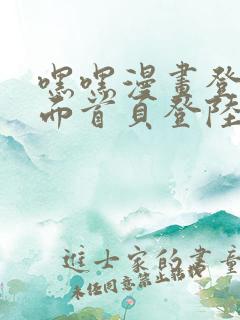 嘿嘿漫畫登
面首頁登陸
進士家的書童
未经同意禁止转载